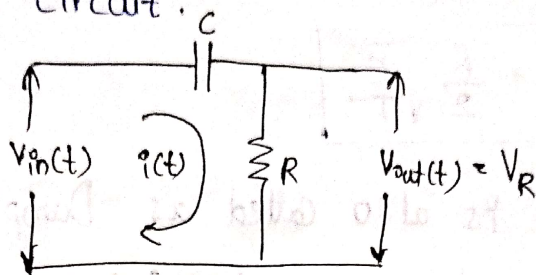 circuit.
C
Vin(t)
i(t)
R
Vout(t) = VR